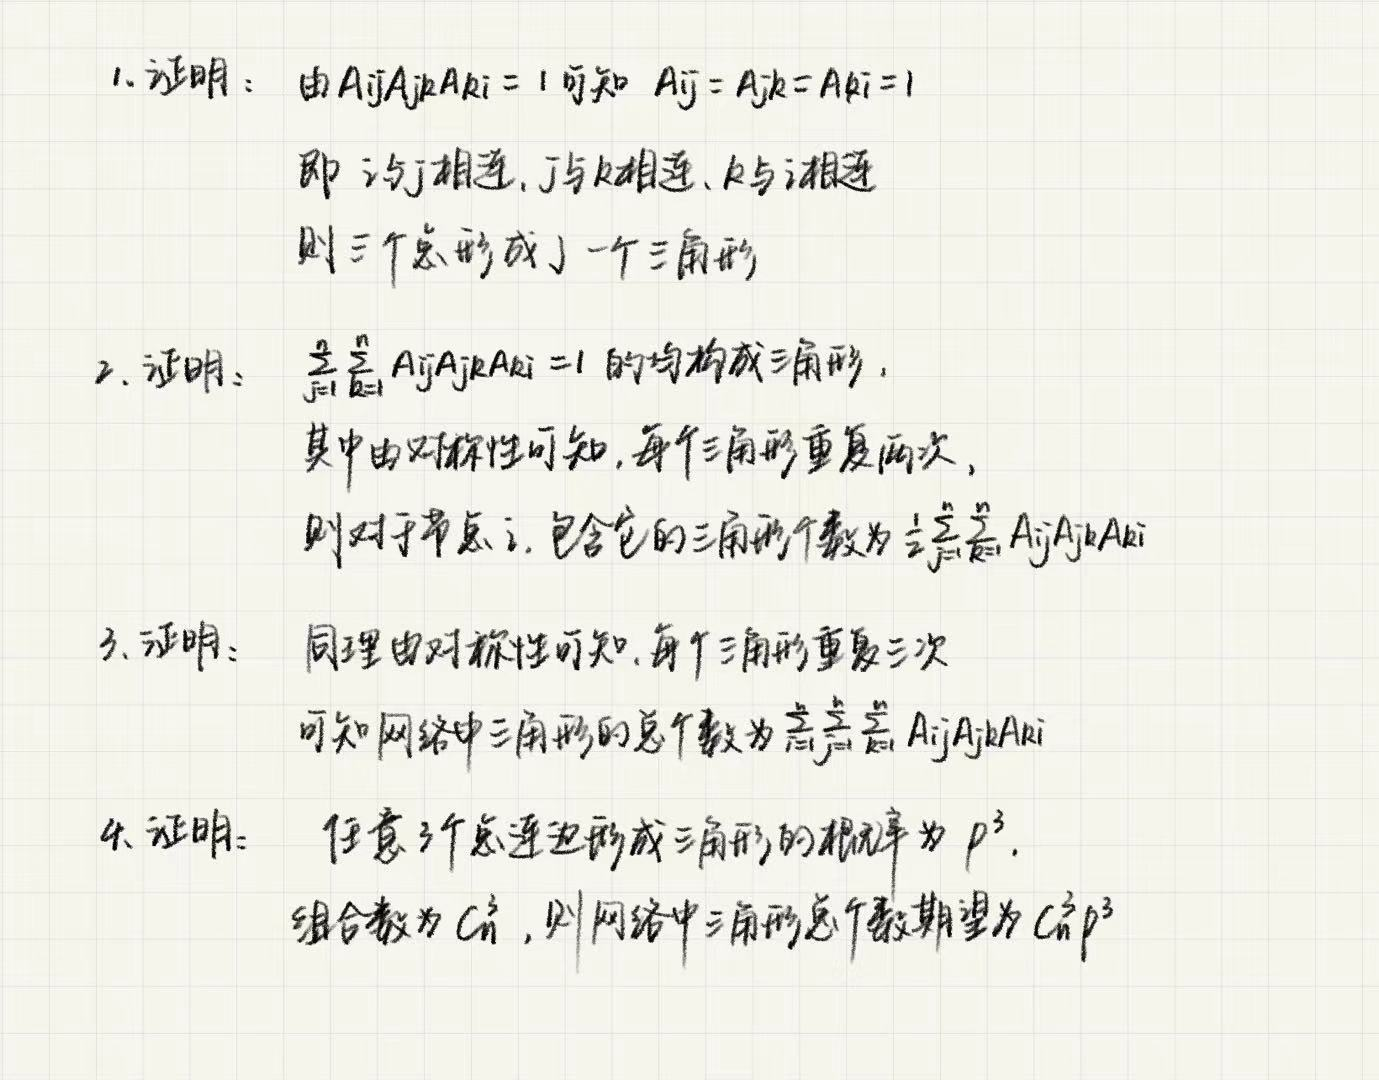 1、证明： 由AijAjkAki = 1 可知 Aij = Ajk = Aki = 1
即 i与j相连，j与k相连、k与i相连
则三个点形成了一个三角形
2、证明： ∑_{j=1}^{n} ∑_{k=1}^{n} AijAjkAki = 1 的均构成三角形，
其中由对称性可知，每个三角形重复两次，
则对于节点i，包含它的三角形个数为 1/2 ∑_{j=1}^{n} ∑_{k=1}^{n} AijAjkAki
3、证明： 同理由对称性可知，每个三角形重复三次
可知网络中三角形的总个数为 ∑_{i=1}^{n} ∑_{j=1}^{n} ∑_{k=1}^{n} AijAjkAki
4、证明： 任意3个点连边形成三角形的概率为 p³，
组合数为 C_n^3，则网络中三角形总个数期望为 C_n^3 p³